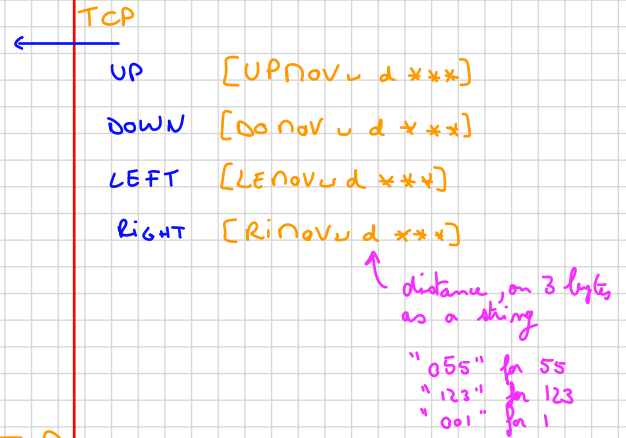 TCP
UP [UPMOV␣d***]
DOWN [DOMOV␣d***]
LEFT [LEMOV␣d***]
RIGHT [RIMOV␣d***]
distance, on 3 bytes,
as a string
"055" for 55
"123" for 123
"001" for 1